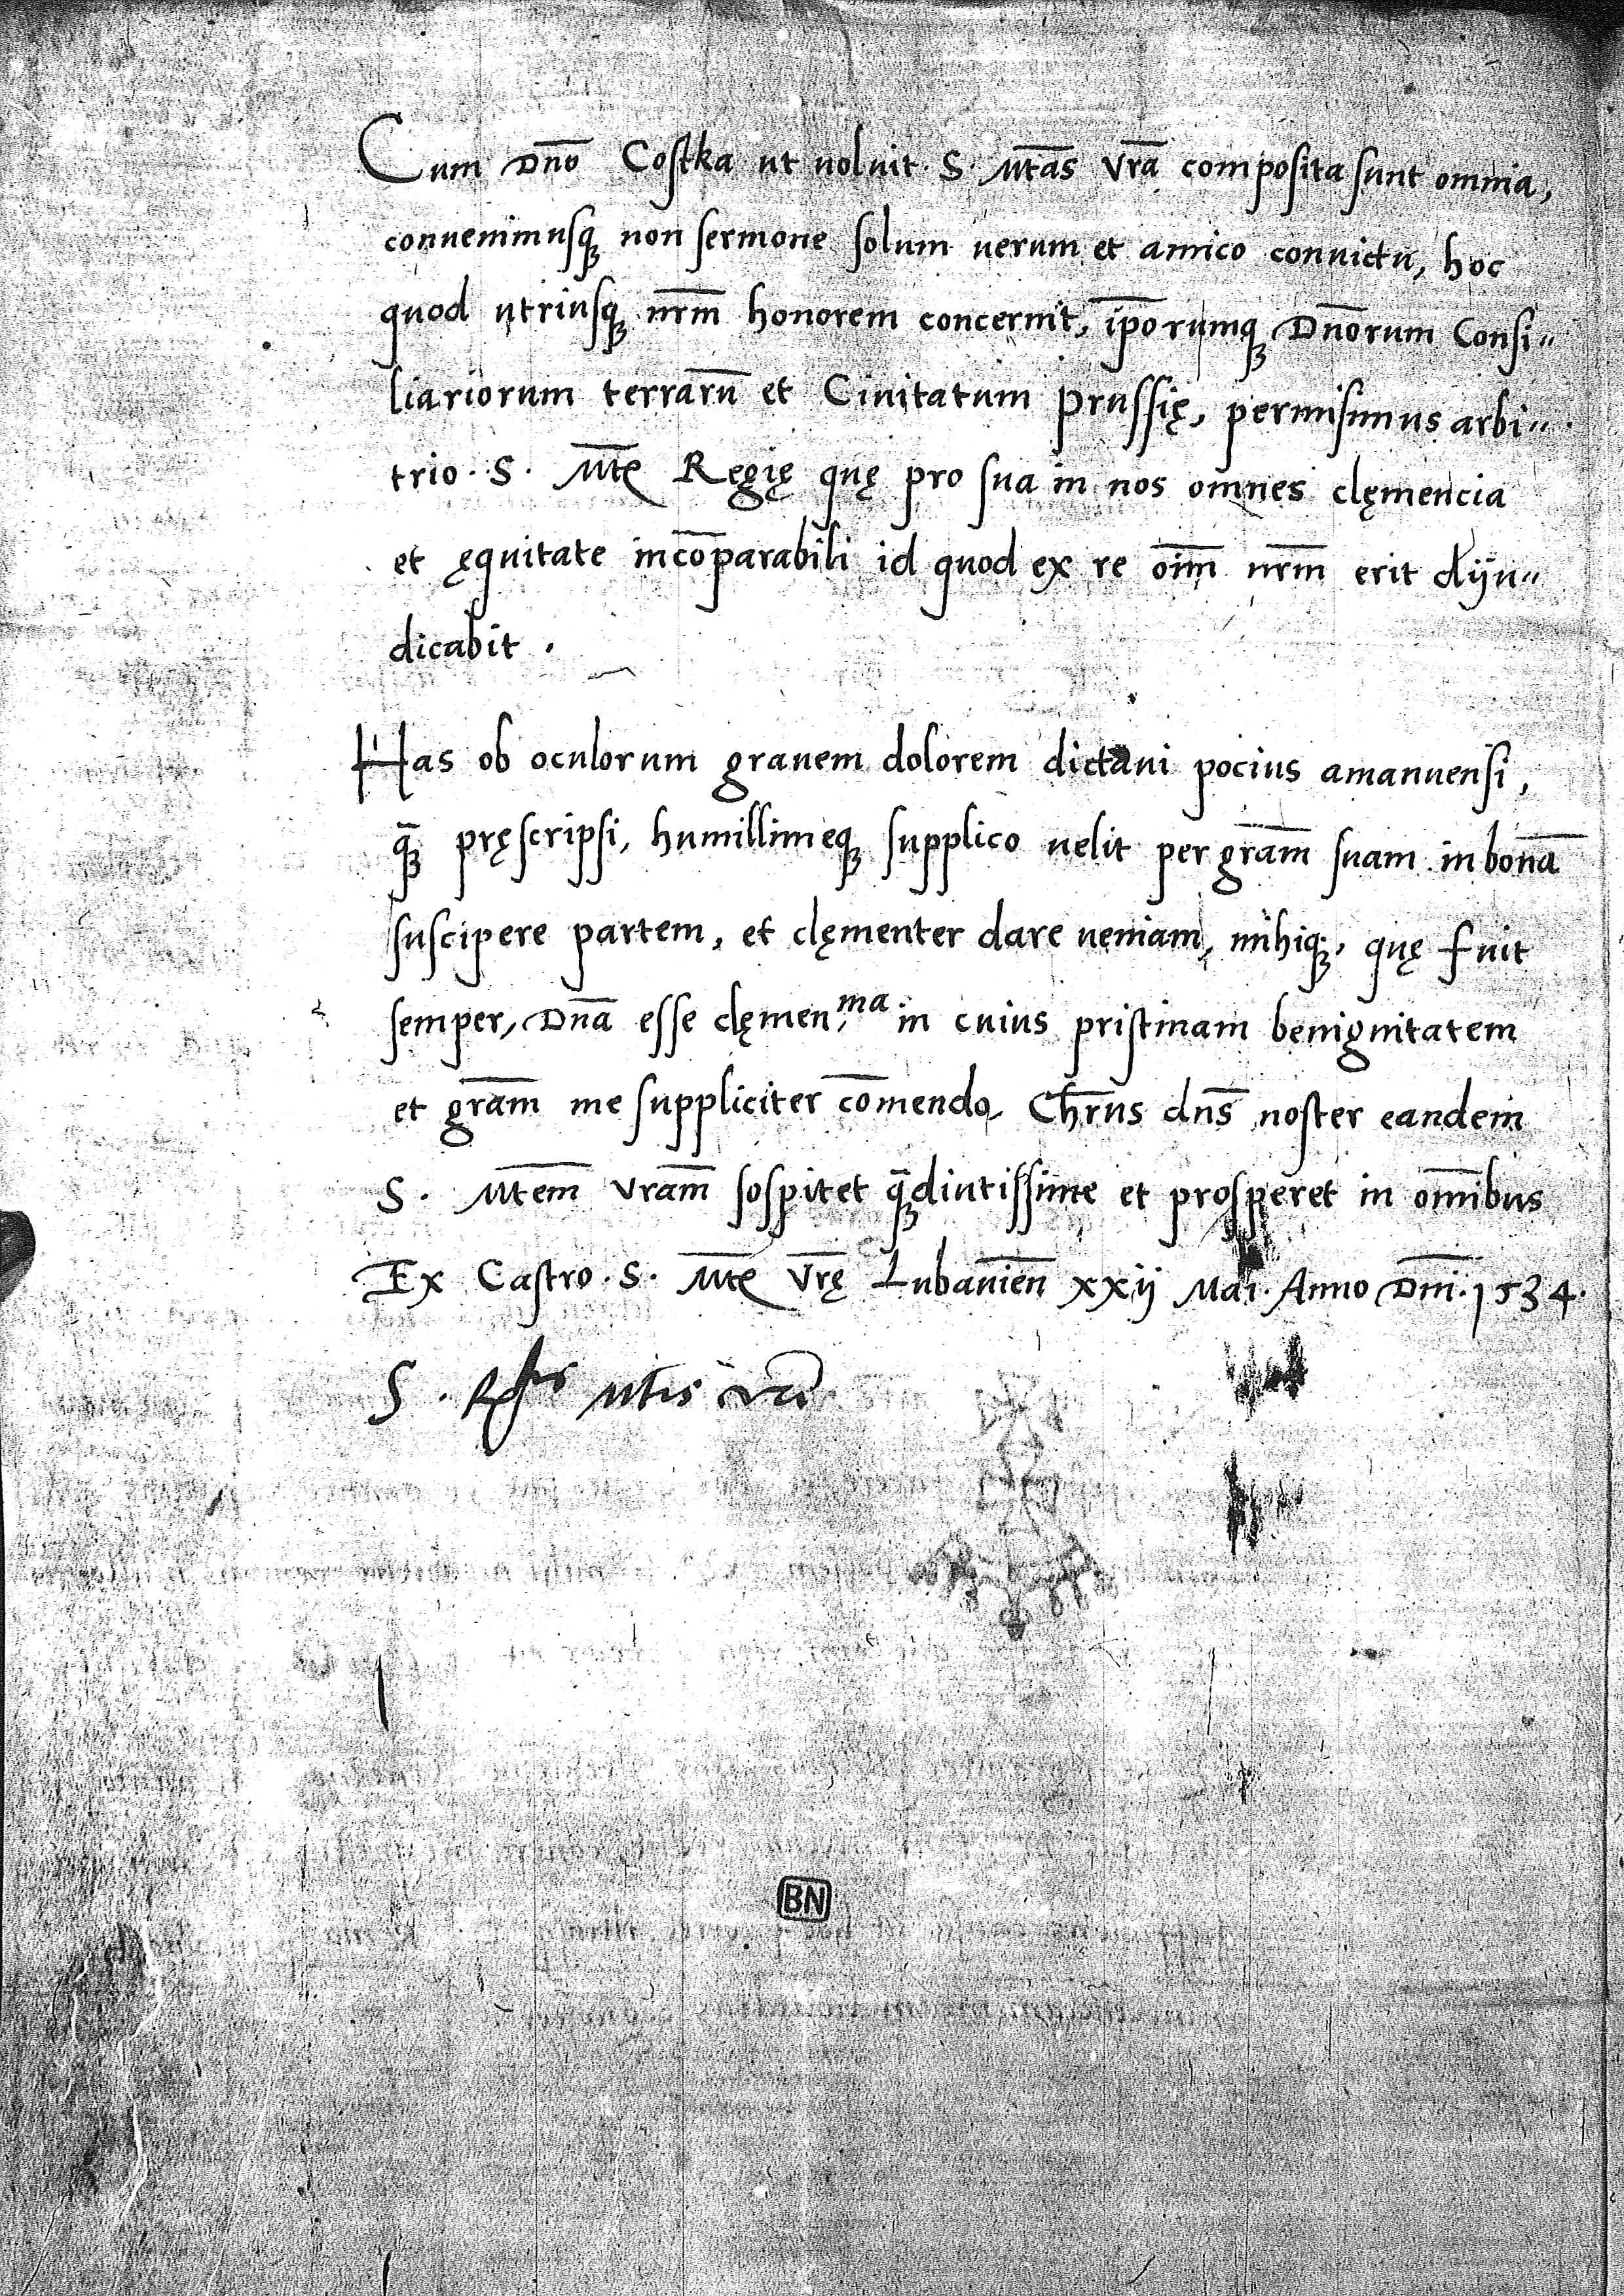 Cum Dn̄o Costka ut uoluit · S · Mt̄as Vr̄a composita sunt omnia,
conuenimusqꝫ non sermone solum uerum et amico conuictu, hoc
quod utriusqꝫ nr̄m honorem concernit, ip̄orumqꝫ Dn̄orum Consi„
liariorum terrarū et Ciuitatum Prussię, permisimus arbi„
trio · S · Mt̄ę Regię quę pro sua in nos omnes clęmencia
et ęquitate incōparabili id quod ex re oīm nr̄m erit dÿu„
dicabit .
Has ob oculorum grauem dolorem dictaui pocius amanuensi,
q̄ꝫ pręscripsi, humillimeqꝫ supplico uelit per gr̄am suam in bonā
suscipere partem, et clęmenter dare ueniam, mihiqꝫ, quę fuit
semper, Dn̄a esse clęmen:ᵐᵃ in cuius pristinam benignitatem
et gr̄am me suppliciter cōmendo. Chr̄us dn̄s noster eandem
S · Mt̄em Vr̄am sospitet q̄ꝫdiutissime et prosperet in om̄ibus
Ex Castro · S · Mt̄ę Vr̄ę Lubauien̄ xxij Mai · Anno Dn̄i · 1534 ·
S · Rᵍⁱᵉ Mtis Vrē
BN